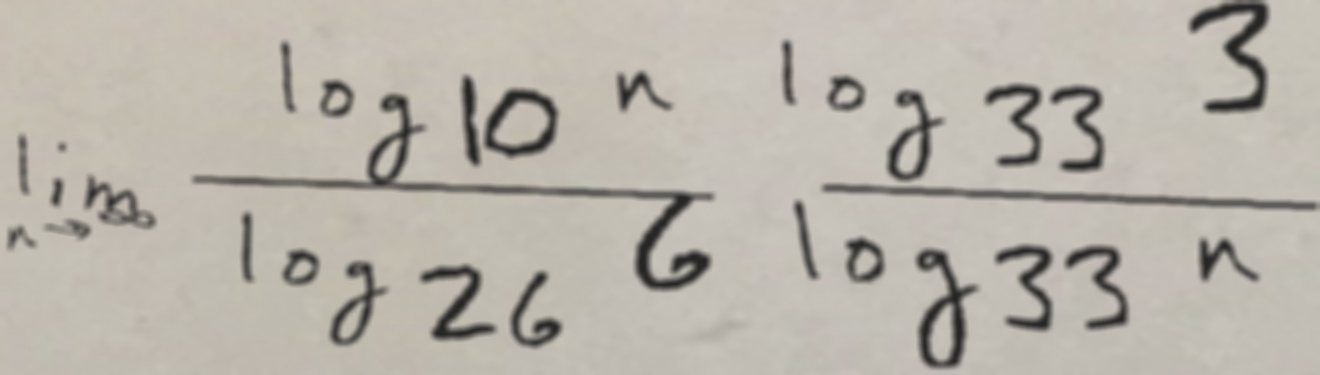 \lim_{n \to \infty} \frac{\log_{10} n}{\log_{26} 6} \frac{\log_{33} 3}{\log_{33} n}